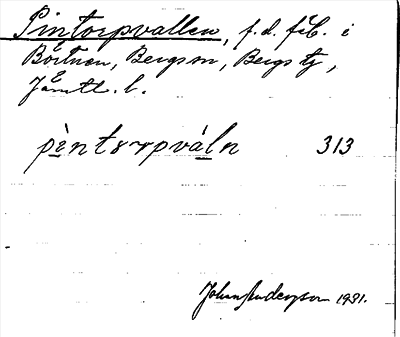 Pintorpvallen, f.d. fäb. i
Börtnen, Bergs sn, Bergs tg,
Jämtl. l.
pèntorpváln 313
Johan Anderson 1931.